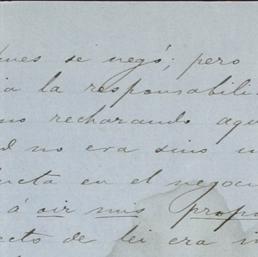 ues se negó; pero
ia la responsabili
no rechazando aqu
d no era sino u
ucta en el negoci
á oir mis propo
ecto de lei era in